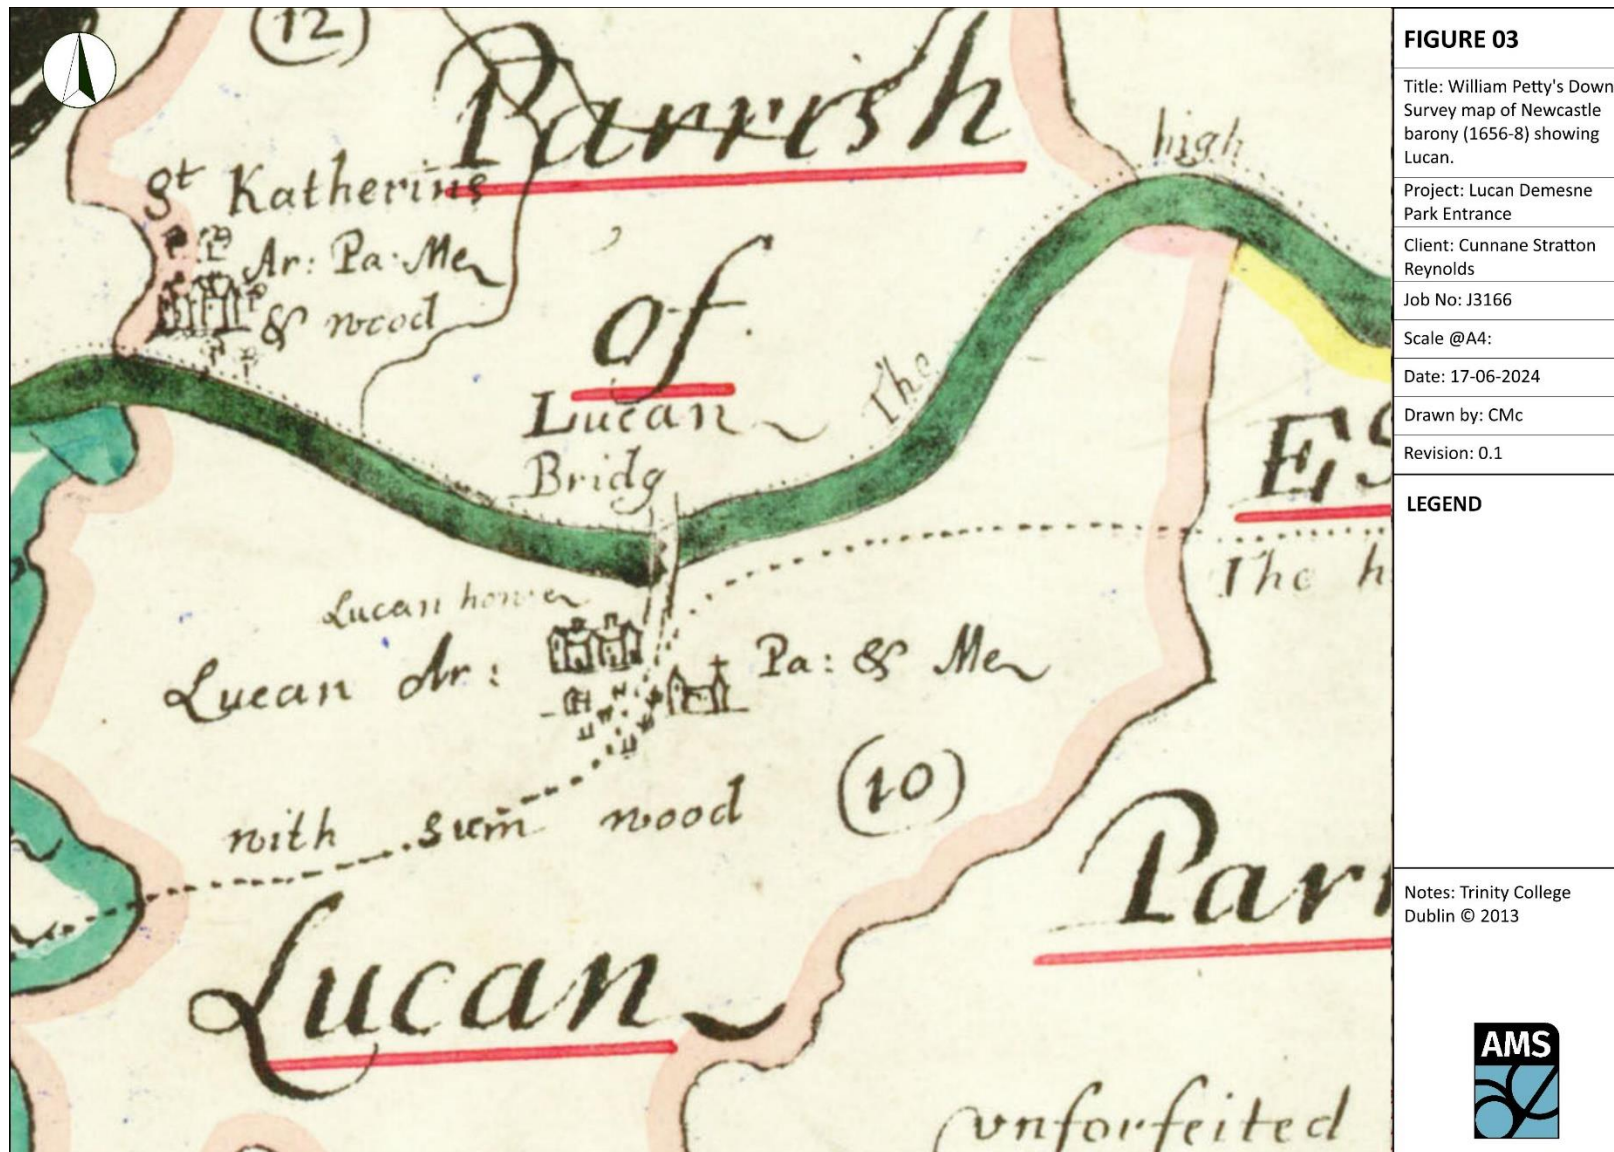 (12)
Parrish
high
St Katherins
Ar: Pa: Me
& wood
of
The
Lucan
Bridg
ES
The h
Lucan howse
Lucan Ar: Pa: & Me
with sum wood (10)
Parr
Lucan
vnforfeited
FIGURE 03
Title: William Petty's Down
Survey map of Newcastle
barony (1656-8) showing
Lucan.
Project: Lucan Demesne
Park Entrance
Client: Cunnane Stratton
Reynolds
Job No: J3166
Scale @A4:
Date: 17-06-2024
Drawn by: CMc
Revision: 0.1
LEGEND
Notes: Trinity College
Dublin © 2013
AMS